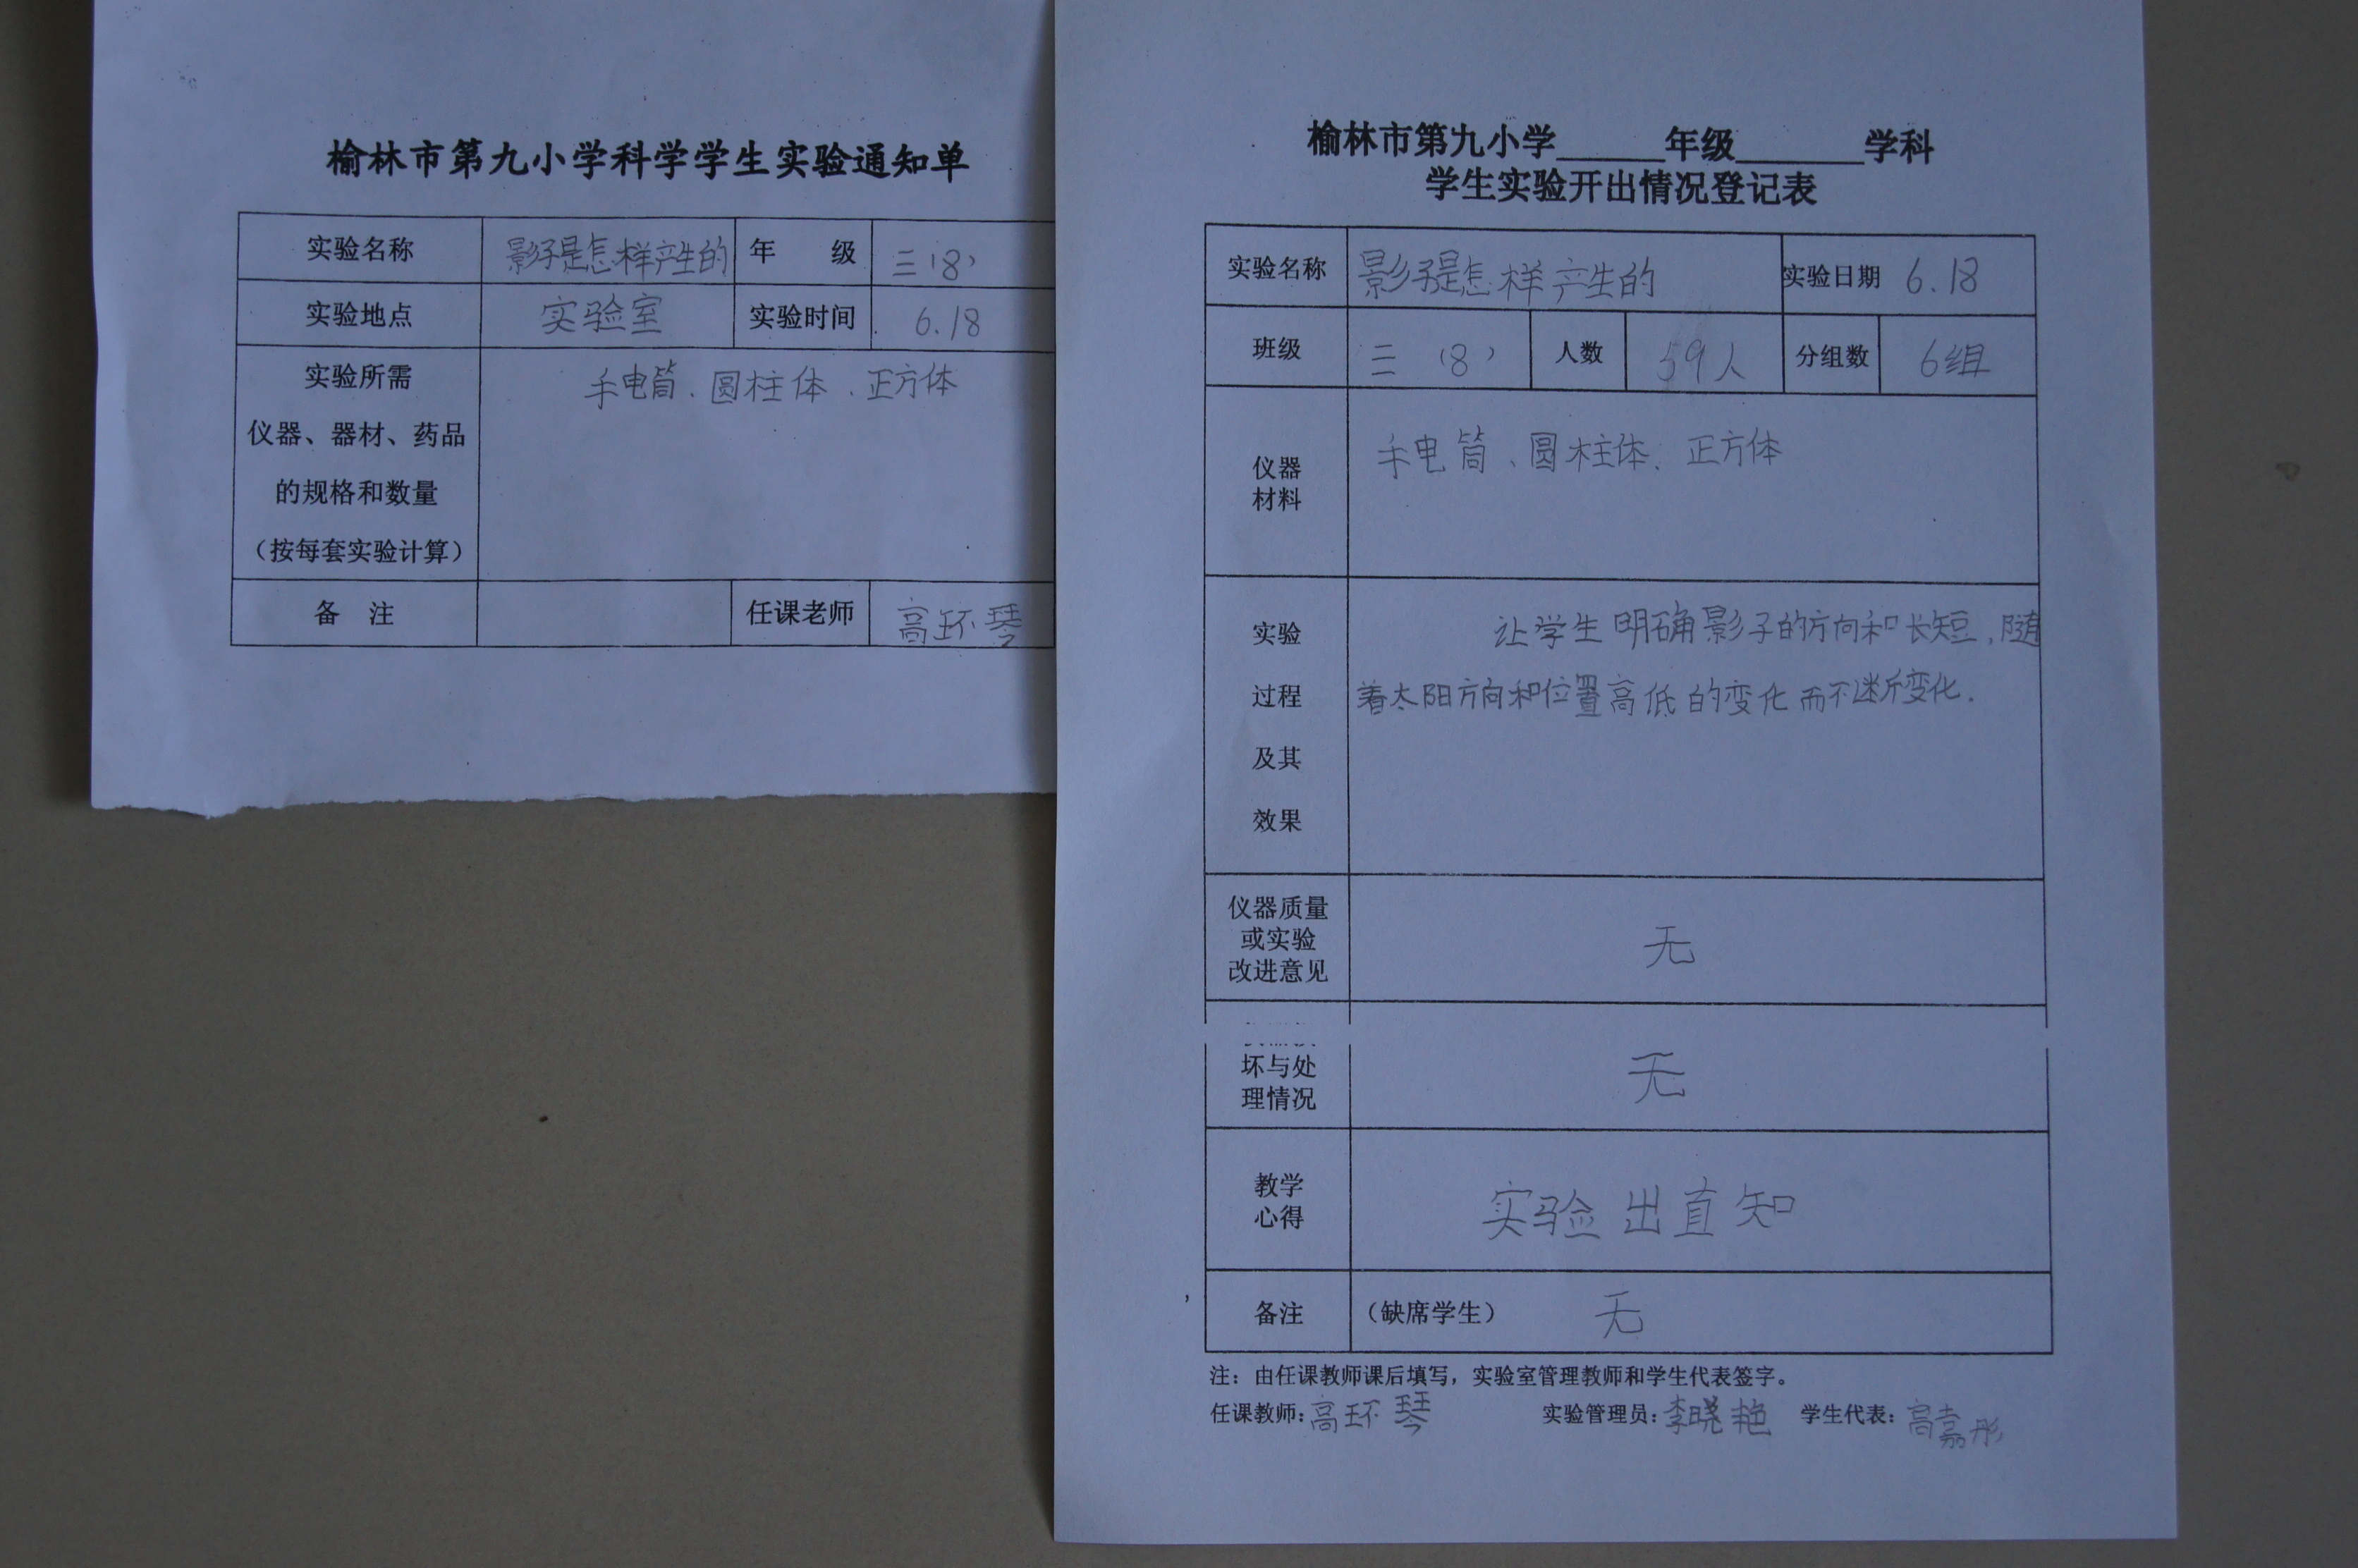 榆林市第九小学科学学生实验通知单
实验名称 影子是怎样产生的 年 级 三(8)
实验地点 实验室 实验时间 6.18
实验所需 手电筒、圆柱体、正方体
仪器、器材、药品
的规格和数量
(按每套实验计算)
备 注 任课老师 高环琴
榆林市第九小学______年级_______学科
学生实验开出情况登记表
实验名称 影子是怎样产生的 实验日期 6.18
班级 三(8) 人数 59人 分组数 6组
仪器 手电筒、圆柱体、正方体
材料
实验 让学生明确影子的方向和长短,随
过程 着太阳方向和位置高低的变化而不断变化.
及其
效果
仪器质量
或实验 无
改进意见
坏与处 无
理情况
教学 实验出直知
心得
备注 (缺席学生) 无
注:由任课教师课后填写,实验室管理教师和学生代表签字。
任课教师:高环琴 实验管理员:李晓艳 学生代表:高嘉彤